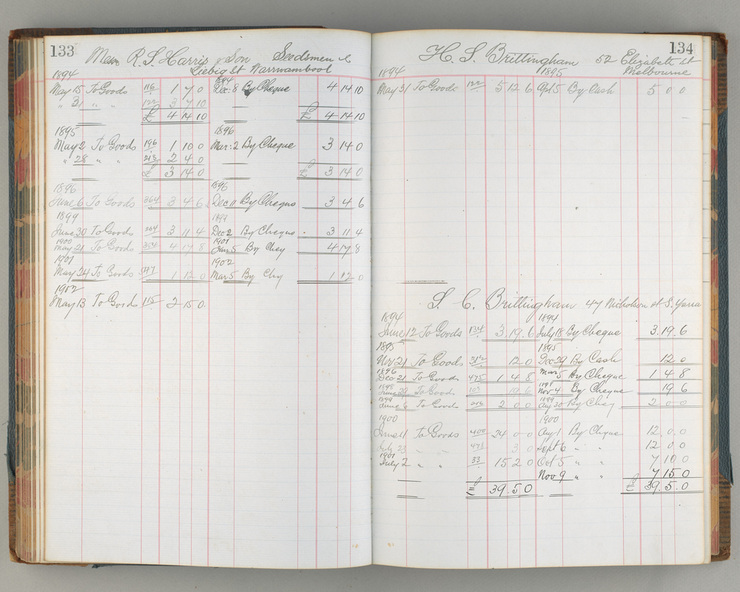 133
R. S. Harris & Son Seedsmen &c
Liebig St Warrnambool
1894
May 15 To Goods 116 1 7 0 Dec. 8 By Cheque 4 14 10
" 31 " " 122 3 7 10
£ 4 14 10 £ 4 14 10
1895 1896
May 2 To Goods 196 1 10 0 Mar. 2 By Cheque 3 14 0
" 28 " " 212 2 4 0
£ 3 14 0 £ 3 14 0
1896 1896
June 6 To Goods 3 4 6 Dec 11 By Cheque 3 4 6
1899 1899
June 20 To Goods 3 11 4 Dec 2 By Cheque 3 11 4
1900 1901
May 21 To Goods 4 17 8 Jan 5 By Cheq 4 17 8
1901 1902
May 24 To Goods 1 12 0 Mar. 5 By Chq 1 12 0
1912
May 13 To Goods 115 2 15 0
134
H. S. Brittingham 52 Elizabeth St
Melbourne
1894 1895
May 31 To Goods 122 5 12 6 By Cash 5 0 0
S. C. Brittingham 47 Nicholson st S. Yarra
1894 1894
June 12 To Goods 3 19 6 July 18 By Cheque 3 19 6
1895 1895
21 To Goods 12 0 Dec 29 By Cash 12 0
1896
Dec 21 To Goods 1 4 8 Mar 5 By Cheque 1 4 8
To Goods Nov 4 By Cheque 19 6
1899 1899
June To Goods 2 0 0 Aug By Cheq 2 0 0
1900 1900
June 11 To Goods 404 24 0 0 Aug 1 By Cheque 12 0 0
Sept 6 " " 12 0 0
1901
July 2 " " 53 15 2 0 Oct 5 " " 7 10 0
Nov 9 " " 7 15 0
£ 39 5 0 £ 39 5 0